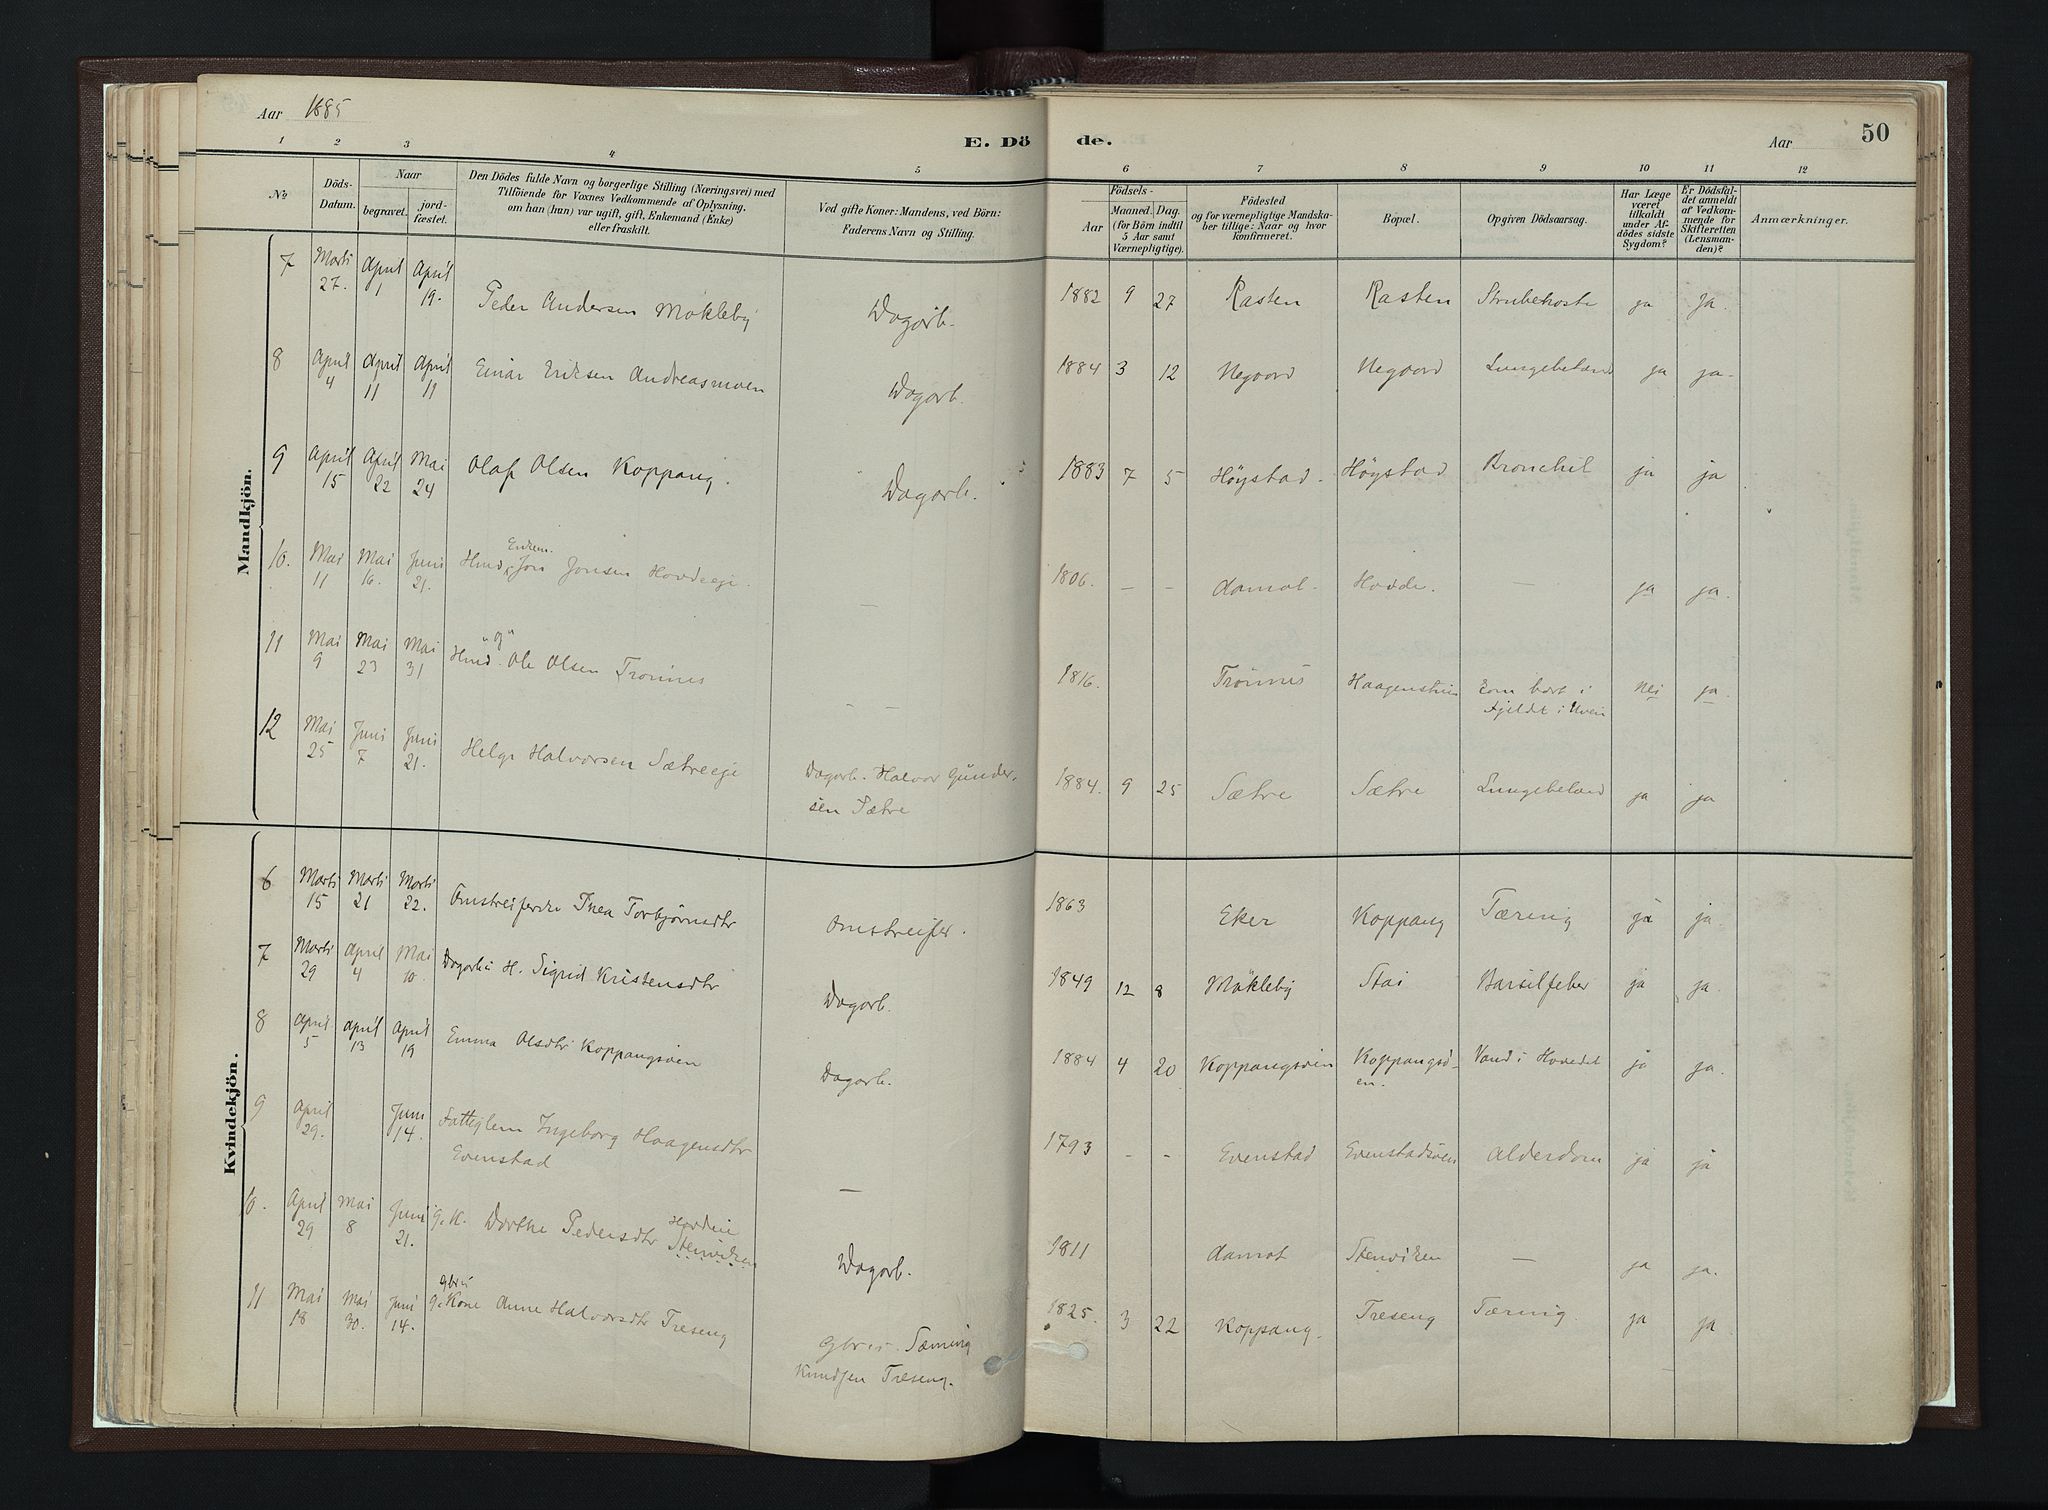 Aar 1885
E. Döde.
Aar
50
1 2 3 4 5 6 7 8 9 10 11 12
№
Döds-Datum.
Naar
begravet.
jordfæstet.
Den Dödes fulde Navn og borgerlige Stilling (Næringsvei) med
Tilföiende for Voxnes Vedkommende af Oplysning,
om han (hun) var ugift, gift, Enkemand (Enke)
eller fraskilt.
Ved gifte Koner: Mandens, ved Börn:
Faderens Navn og Stilling.
Födsels-
Aar
Maaned. Dag.
(for Börn indtil
5 Aar samt
Værnepligtige).
Födested
og for værnepligtige Mandskaber
tillige: Naar og hvor
konfirmeret.
Bopæl.
Opgiven Dödsaarsag.
Har Læge
været
tilkaldt
under Afdödes
sidste
Sygdom?
Er Dödsfaldet
anmeldt
af Vedkommende
for
Skifteretten
(Lensmanden)?
Anmærkninger.
Mandkjön.
7 Marts 27. April 1 April 19. Peder Andersen Mökleby Dagarb. 1882 9 27 Rasten Rasten Strubehoste ja ja.
8 April 4 April 11 April 11 Einar Eriksen Andreasmoen Dagarb. 1884 3 12 Negaard Negaard Lungebetænd ja ja.
9 April 15 April 22 Mai 24 Olaf Olsen Koppang. Dagarb. 1883 7 5 Höystad. Höystad Bronchit ja ja
10. Mai 11 Mai 16. Juni 21. Enkem.
Hmd. Jon Jonsen Hovdeeje. — 1806. — — Aamot. Hovde. — ja ja.
11 Mai 9 Mai 23 Mai 31 Hmd. Ole Olsen Trönnes — — 1816. Trönnes Haagenstuen Kom bort i
Fjeldet i Uveir nei ja.
12 Mai 25 Juni 7 Juni 21. Helge Halvorsen Sætreeje Dagarb. Halvor Gunder-
sen Sætre 1884. 9 25 Sætre Sætre Lungebetænd ja ja
Kvindekjön.
6 Marts 15 Marts 21 Marts 22. Omstreiferske Thea Torbjörnsdtr Omstreifer. 1863 Eker Koppang Tæring ja ja.
7 Marts 29 April 4 Mai 10. Dagarb. H. Sigrid Kristensdtr Dagarb. 1849 12 8 Mökleby Stai Barsilfeber ja ja.
8 April 5 April 13 April 19 Emma Olsdtr Koppangsöien Dagarb. 1884 4 20 Koppangsöien Koppangsö-
en. Vand i Hovedet ja ja.
9 April 29. Juni 14. Fattiglem Ingeborg Haagensdtr
Evenstad — 1793 — — Evenstad Evenstadsöen Alderdom ja ja
10. April 29 Mai 8 Juni 21. g. K. Dorthe Pedersdtr Stenviken Dagarb. 1811 Aamot Stenviken — ja ja.
11 Mai 18 Mai 30. Juni 14. g. Kone Anne Halvorsdtr Treseng Gbr. Sæming
Knudsen Treseng. 1825. 3 22 Koppang. Treseng Tæring. ja ja